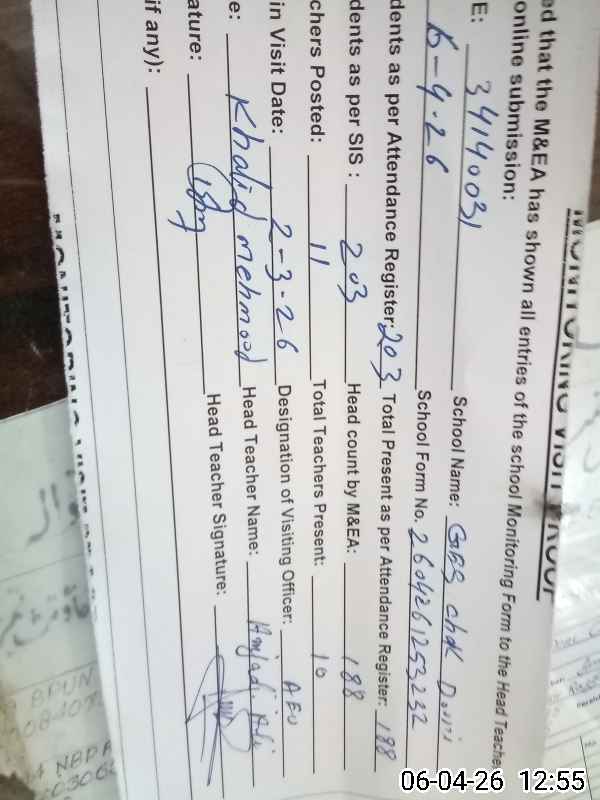 MONITORING VISIT PROOF
ed that the M&EA has shown all entries of the school Monitoring Form to the Head Teache
online submission:
E: 34140031 School Name: GES chak
6-4-26 School Form No. 2604261253232
dents as per Attendance Register: 203 Total Present as per Attendance Register: 188
dents as per SIS : 203 Head count by M&EA: 188
chers Posted: 11 Total Teachers Present: 10
in Visit Date: 2-3-26 Designation of Visiting Officer: AEO
e: Khalid mehmood Head Teacher Name: Amjad Ali
ature: Head Teacher Signature:
if any):
MONITORING VISIT
06-04-26 12:55